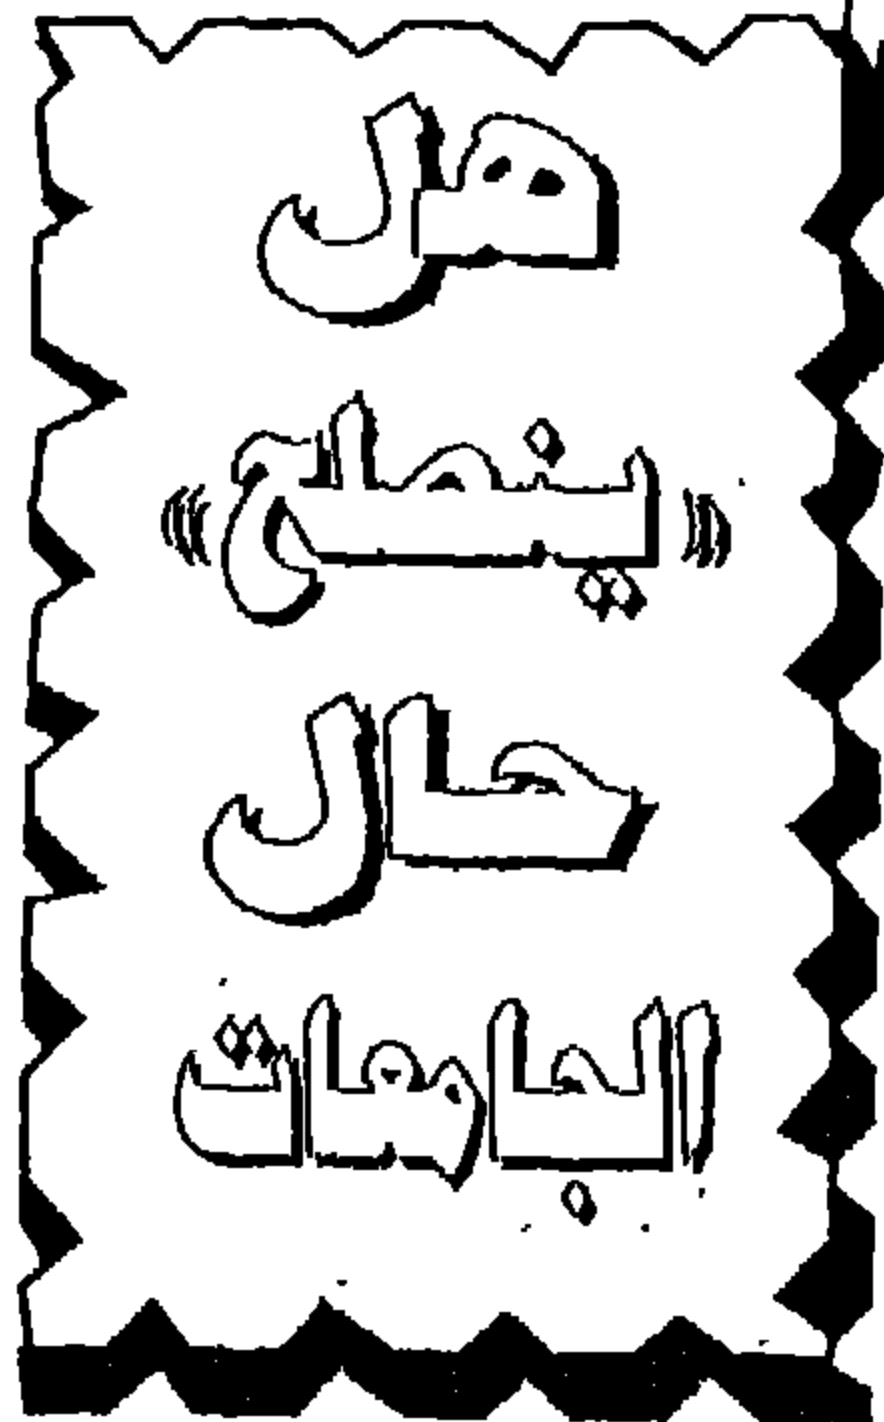 هل
((ينصلح))
حال
الجامعات